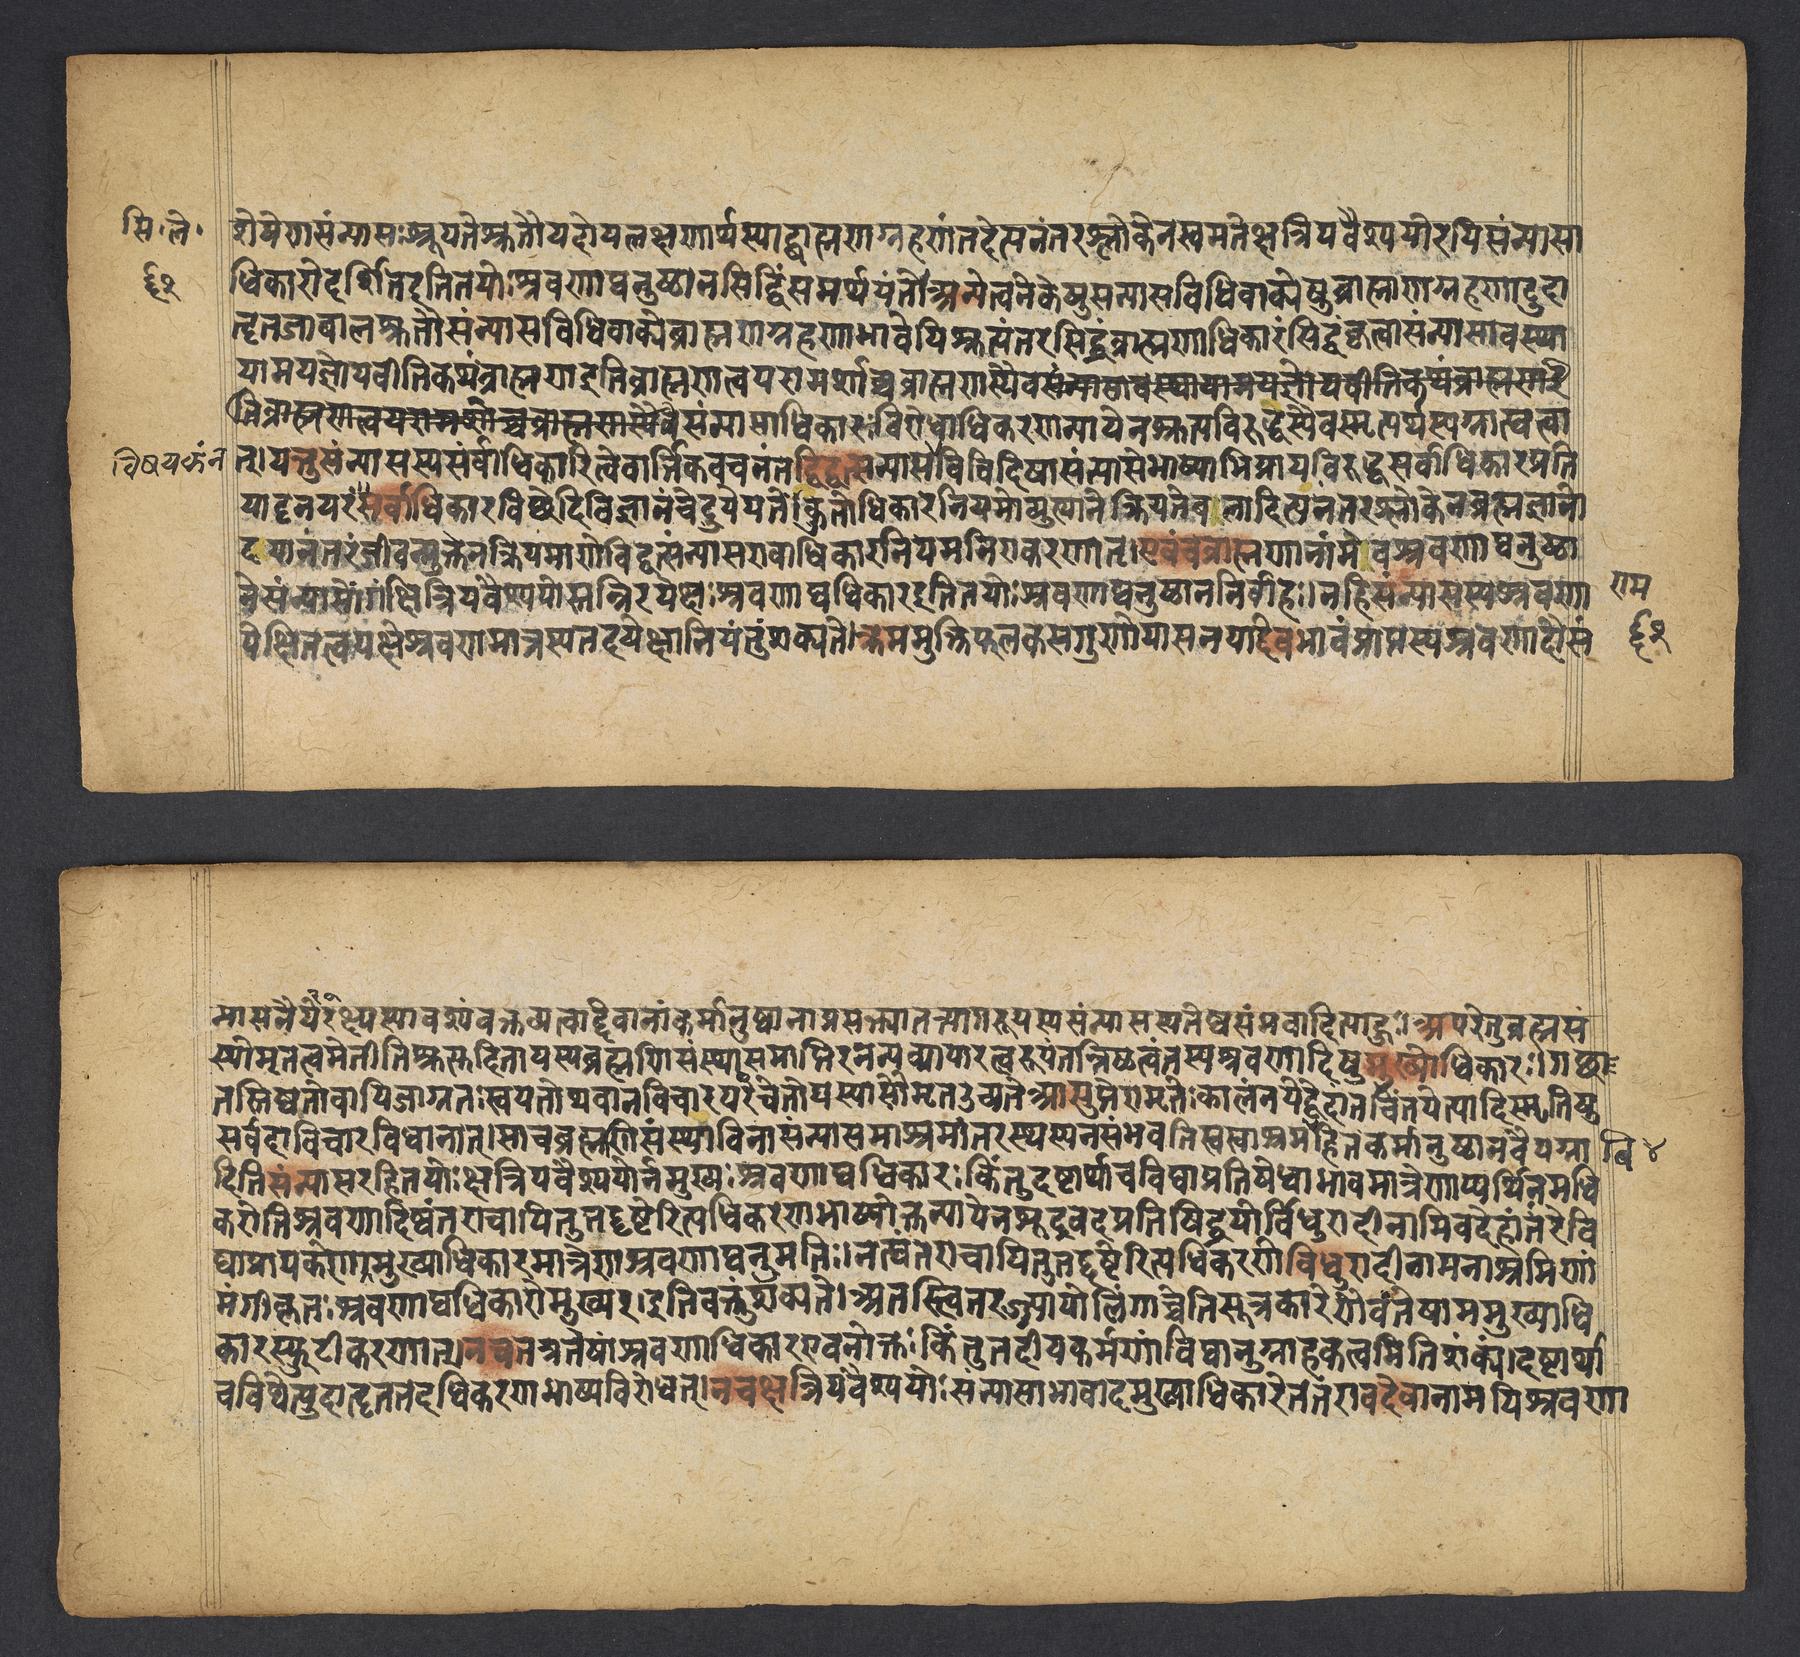 सि॰ले॰
६२
शेषेणसंन्यासःश्रूयतेश्रुतौयद्दोपलक्षणार्थस्याद्ब्राह्मणग्रहणंतदेत्यनंतरश्लोकेनस्वमतेक्षत्रियवैश्ययोरपिसंन्यासा
धिकारोदर्शितइतितयोःश्रवणाद्यनुष्ठानसिद्धिंसमर्थयंते।अन्येत्वनेकेषुसंन्यासविधिवाक्येषुब्राह्मणग्रहणादुदा
तृतजाबालश्रुतौसंन्यासविधिवाक्येब्राह्मणग्रहणाभावेपिश्रुत्यंतरसिद्धंब्राह्मणाधिकारंसिद्धंकृत्वासंन्यासावस्था
यामयज्ञोपवीतिकथंब्राह्मणइतिब्राह्मणत्वपरामर्शाच्चब्राह्मणस्यैव
संन्यासाधिकारःविरोधाधिकरणन्यायेनश्रुत्यविरुद्धस्यैवस्मृत्यर्थस्यग्राह्यत्वा
विषयकंन
त्।यत्तुसंन्याससस्यसर्वाधिकारित्वेवार्त्तिकवचनंतद्विद्वत्संन्यासविविदिषासंन्यासेभाष्याभिप्रायविरुद्धसर्वाधिकारप्रति
यादनपरंसर्वाधिकारविच्छेदिविज्ञानंचेदुपेयते।कुतोधिकारनियमोव्युत्थानेक्रियतेबलादित्यनंतरश्लोकेनब्रह्मज्ञानो
दयानंतरंजीवन्मुक्तेनक्रियमाणेविद्वत्संन्यासएवाधिकारनियमनिराकरणात्।एवंचब्राह्मणानामेवश्रवणाद्यनुष्ठा
नेसंन्यासोंगंक्षत्रियवैश्ययोस्तन्निरपेक्षःश्रवणाद्यधिकारइतितयोःश्रवणाद्यनुष्ठाननिर्वाहः।नहिसंन्यासस्यश्रवणा
राम
पेक्षितत्वपक्षेश्रवणमात्रस्यतदपेक्षानियंतुंशक्यते।क्रममुक्तिफलकसगुणोपासनयादेवभावंप्राप्तस्यश्रवणादौसं
६२
न्यासनैरपेक्ष्यस्यावश्यंवक्तव्यत्वाद्देवानांकर्मानुष्ठानाप्रसक्त्यातत्त्यागरूपस्यसंन्यासस्यतेष्वसंभवादित्याहुः।अपरेतुब्रह्मसं
स्थोमृतत्वमेतीतिश्रुत्तदितायस्यब्रह्मणिसंस्थासमाप्तिरनन्यव्यापारत्वरूपंतन्निष्ठत्वंतस्यश्रवणादिषुमुख्योधिकारः।गच्छ
तस्तिष्ठतोवापिजाग्रतःस्वपतोपिवानविचारपरंचेतोयस्यासौमृतउच्यतेआसुप्तेरामृतेःकालंनयेद्वेदांतचिंतयेत्यादिस्मृतिषु
सर्वदाविचारविधानात्।साचब्रह्मणिसंस्थाविनासंन्यासमाश्रमांतरस्थस्यनसंभवतिस्वस्वाश्रमविहितकर्मानुष्ठानवैयग्र्या
वि४
दितिसंन्यासरहितयोःक्षत्रियवैश्ययोर्नमुख्यःश्रवणाद्यधिकारःकिंतुदृष्टार्थाचविद्याप्रतिषेधाभावमात्रेणाप्यर्थिनमधि
करोतिश्रवणादिष्वंतराचापितुतद्दृष्टेरित्यधिकरणभाष्योक्तन्यायेनशूद्रवदप्रतिषिद्धयोर्विधुरादीनामिवदेहांतरेवि
द्याप्रापकेणामुख्याधिकारमात्रेणश्रवणाद्यनुमतिः।नत्वंतराचापितुतद्दृष्टेरित्यधिकरणेविधुरादीनामनाश्रमिणा
मंगीकृतःश्रवणाद्यधिकारोमुख्यइतिवक्तुंशक्यते।अतस्त्वितरज्ज्यायोलिंगाच्चेतिसूत्रकारेणैवतेषाममुख्याधि
कारस्फुटीकरणात्।नचतत्रतेषांश्रवणाधिकारएवनोक्तःकिंतुतदीयकर्मणांविद्यानुग्राहकत्वमितिशंक्यं।दृष्टार्था
चविद्येत्युदाहृततदधिकरणभाष्यविरोधात्।नचक्षत्रियवैश्ययोःसंन्यासाभावादमुख्याधिकारेतेतराएवदेवानामपिश्रवणा